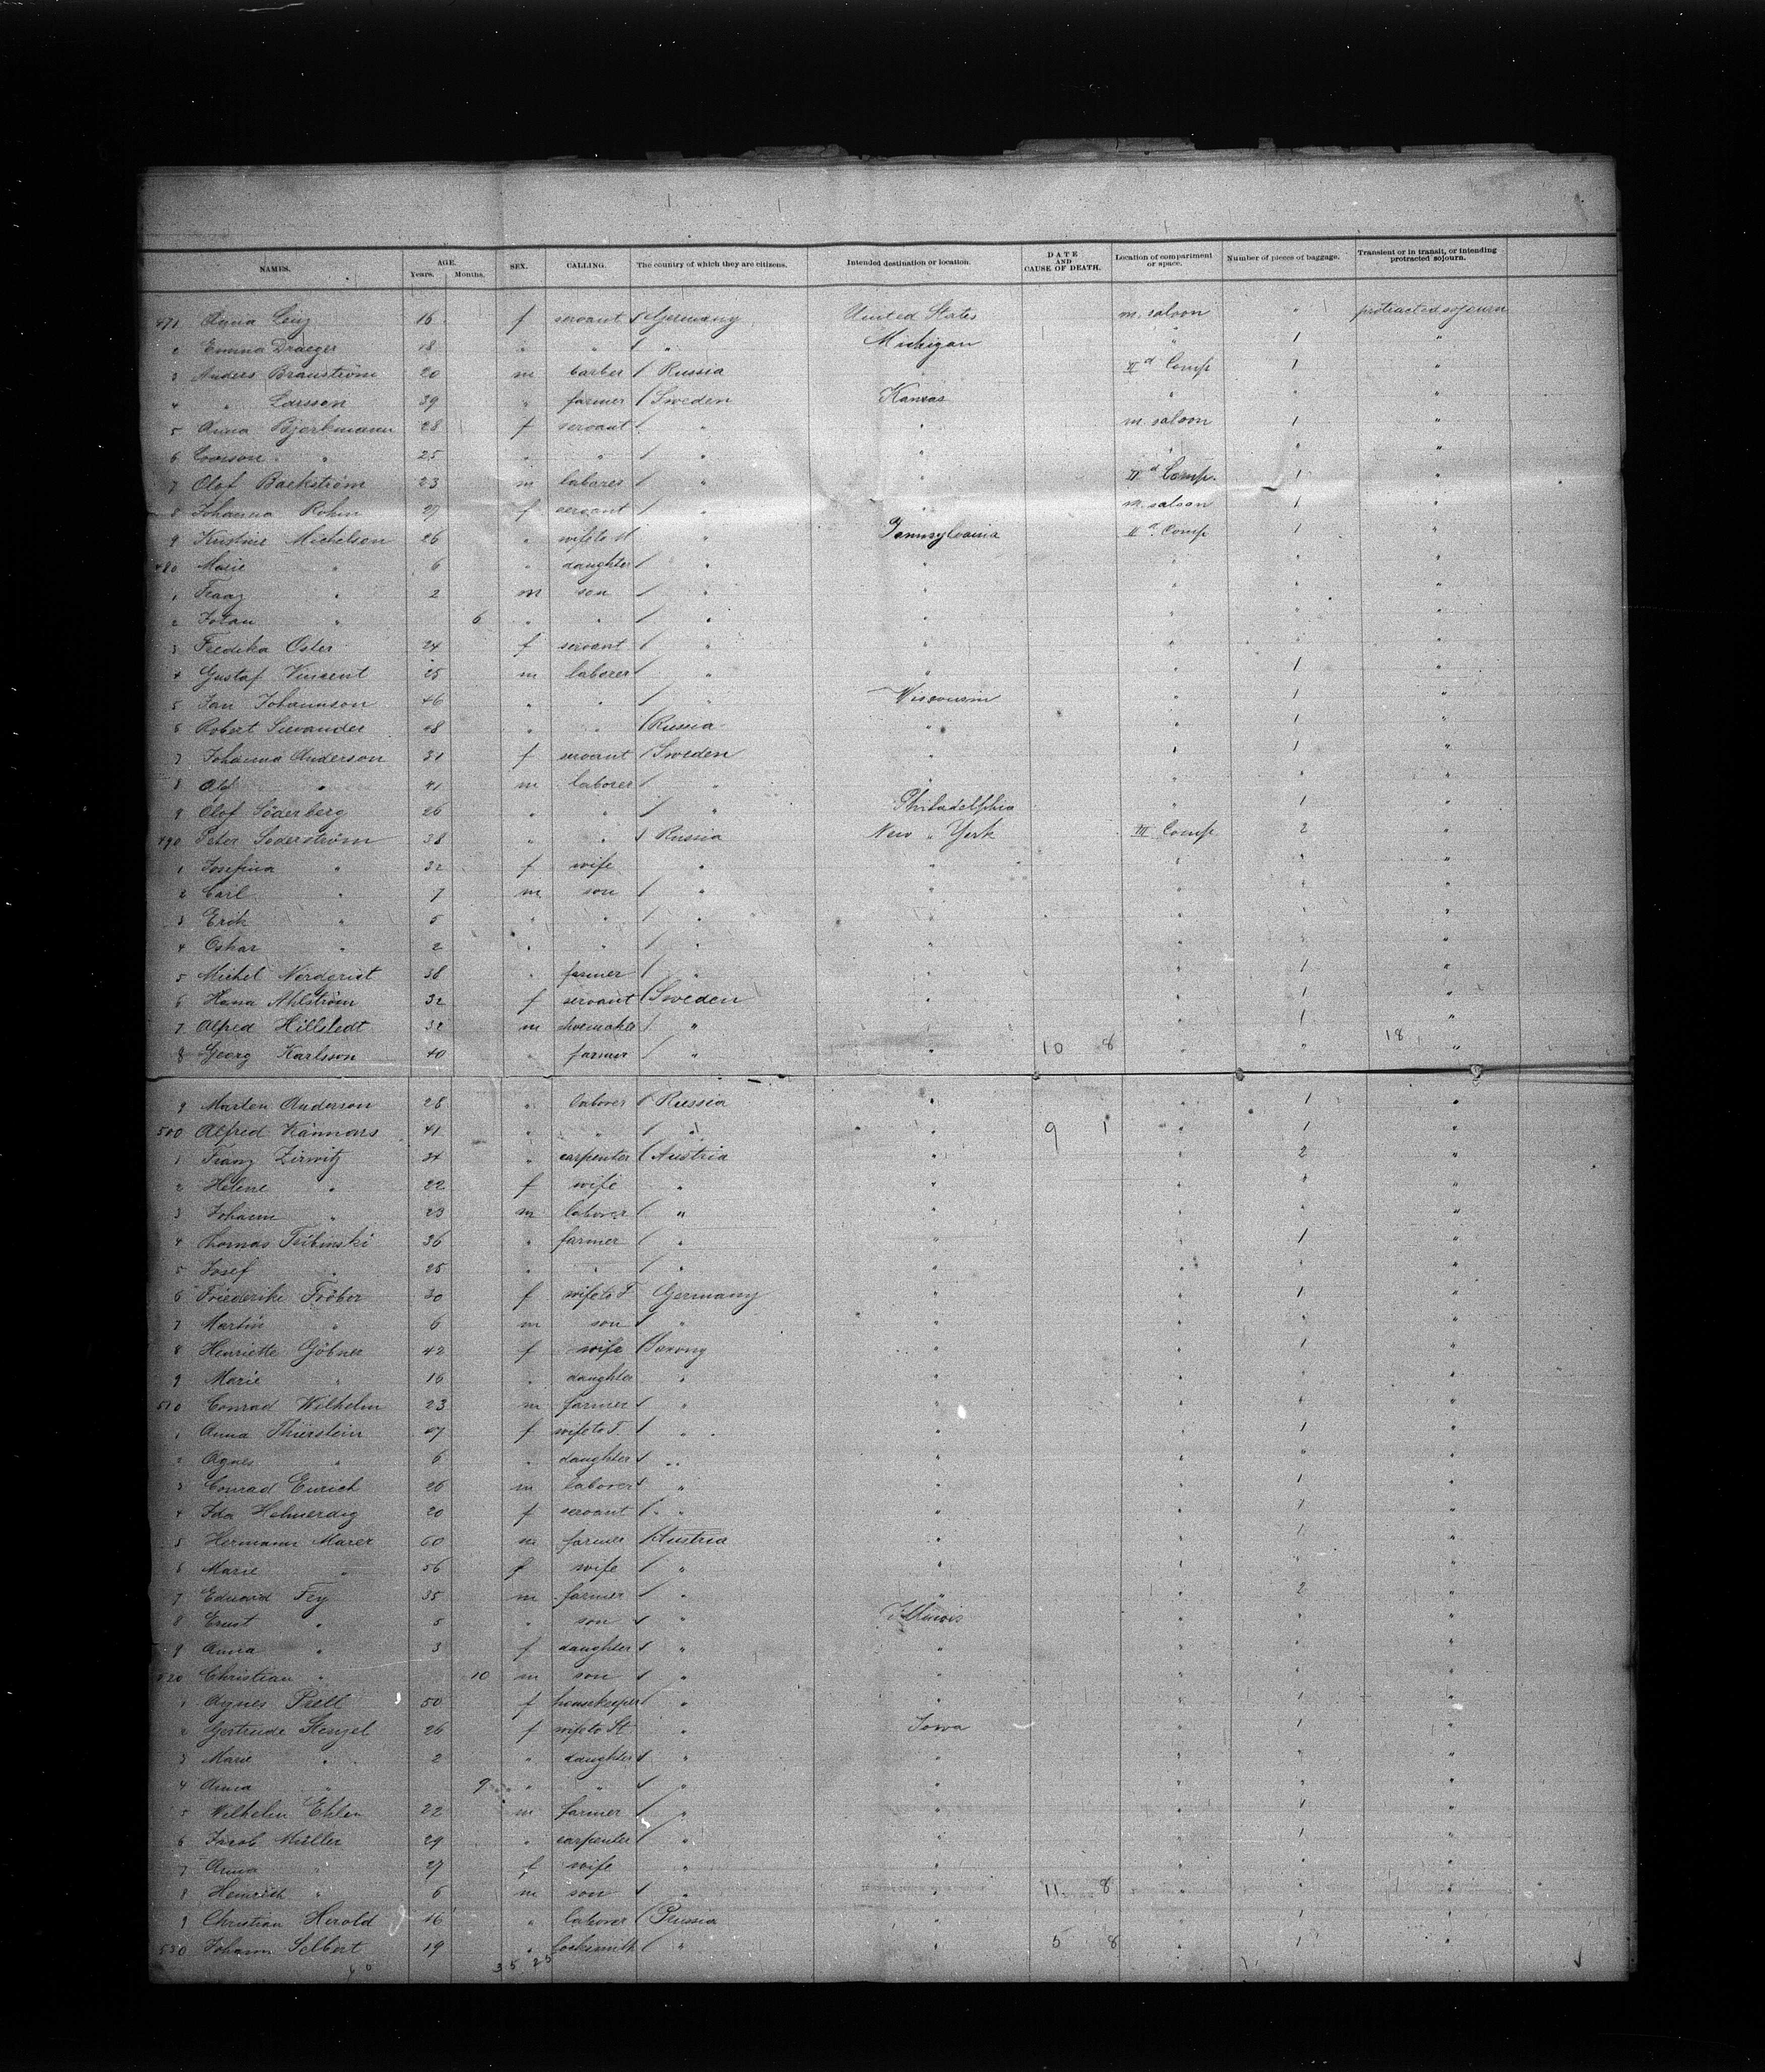 NAMES. AGE. Years. Months. SEX. CALLING. The country of which they are citizens. Intended destination or location. DATE AND CAUSE OF DEATH. Location of compartment or space. Number of pieces of baggage. Transient or in transit, or intending protracted sojourn.
471 Anna Lenz 16 f servant Germany United States m. saloon " protracted sojourn
2 Emma Draeger 18 " " " Michigan " 1 "
3 Anders Branström 20 m barber Russia " II d Comp 1 "
4 " Larsson 39 " farmer Sweden Kansas " " "
5 Anna Bjorkmann 28 f servant " " m. saloon 1 "
6 " 25 " " " " " " "
7 Olof Backström 23 m laborer " " II d Comp. 1 "
8 Johanna Rohm 27 f servant " " m. saloon 1 "
9 Kristine Michelson 26 " wife to M " Pennsylvania II d Comp 1 "
480 Marie " 6 " daughter " " " " "
1 Franz " 2 m son " " " " "
2 Johan " 6 " " " " " " "
3 Fredika Oster 24 f servant " " " " "
4 Gustaf Vincent 25 m laborer " " " 1 "
5 Jan Johannson 46 " " " Wisconsin " 1 "
6 Robert 48 " " Russia " " 1 "
7 Johanna Anderson 31 f servant Sweden " " 1 "
8 Olof " 41 m laborer " " " " "
9 Olof Söderberg 26 " " " Philadelphia " 1 "
490 Peter Soderström 38 " " Russia New York III Comp 2 "
1 Josefina " 32 f wife " " " " "
2 Carl " 7 m son " " " " "
3 Erik " 5 " " " " " " "
4 Oskar " 2 " " " " " " "
5 Michel Nordqvist 38 " farmer " " " 1 "
6 Hana Ahlström 32 f servant Sweden " " 1 "
7 Alfred Hillstedt 32 m shoemaker " " " 1 "
8 Georg Karlsson 40 " farmer " " 10 8 " " 18 "
9 Marten Anderson 28 " laborer Russia " " 1 "
500 Alfred Kannars 41 " " " " 9 1 " 1 "
1 Franz Zirwitz 34 " carpenter Austria " " 2 "
2 Helene " 22 f wife " " " " "
3 Johann " 23 m laborer " " " " "
4 Thomas Teibinski 36 " farmer " " " 1 "
5 Josef " 25 " " " " " " "
6 Friederike Fröber 30 f wife to F Germany " " 1 "
7 Martin " 6 m son " " " " "
8 Henriette Göbner 42 f wife Saxony " " 1 "
9 Marie " 16 " daughter " " " " "
510 Conrad Wilhelm 23 m farmer " " " " "
1 Anna Thierstein 27 f wife to T. " " " 1 "
2 Agnes " 6 " daughter " " " " "
3 Conrad Eurich 26 m laborer " " " 1 "
4 Ida Helmerdig 20 f servant " " " 1 "
5 Hermann Marer 60 m farmer Austria " " 1 "
6 Marie " 56 f wife " " " " "
7 Eduard Fey 35 m farmer " " " 2 "
8 Ernst " 5 " son " Illinois " " "
9 Anna " 3 f daughter " " " " "
520 Christian " 10 m son " " " " "
1 Agnes Prell 50 f housekeeper " " " 1 "
2 Gertrude Stenzel 26 f wife to St " Iowa " 1 "
3 Marie " 2 " daughter " " " " "
4 Anna " 9 " " " " " " "
5 Wilhelm Ehlen 22 m farmer " " " 1 "
6 Jacob Müller 29 " carpenter " " " 1 "
7 Anna " 27 f wife " " " " "
8 Heinrich " 6 m son " " 11 8 " " "
9 Christian Herold 16 " laborer Prussia " " 1 "
530 Johann Selbert 19 " locksmith " " 5 8 " 1 "
60 35 25